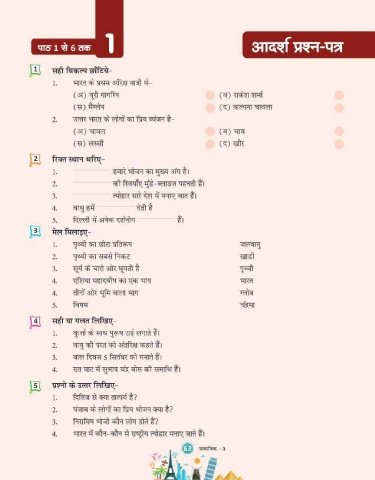 पाठ 1 से 6 तक 1 आदर्श प्रश्न-पत्र
1 सही विकल्प छाँटिये-
1. भारत के प्रथम अंरिक्ष यात्री थे-
(अ) यूरी गागरिन (ब) राकेश शर्मा
(स) मैग्लेन (द) कल्पना चावला
2. उत्तर भारत के लोगों का प्रिय व्यंजन है-
(अ) चावल (ब) चाय
(स) लस्सी (द) खीर
2 रिक्त स्थान भरिए-
1. हमारे भोजन का मुख्य अंग है।
2. की स्त्रियाँ मुंडे-ब्लाउज पहनती हैं।
3. त्योहार सारे देश में मनाए जात हैं।
4. वायु हमें देती है
5. दिल्ली में अनेक दर्शनीय हैं।
3 मेल मिलाइए-
1. पृथ्वी का छोटा प्रतिरूप जलवायु
2. पृथ्वी का सबसे निकट खाड़ी
3. सूर्य के चारो ओर घूमती है पृथ्वी
4. एशिया महाद्वीप का एक भाग भारत
4. तीनों ओर भूमि वाला भाग ग्लोब
5. विषम चंद्रमा
4 सही या गलत लिखिए-
1. कुर्त्ता के साथ पुरूष टाई लगाते हैं।
2. वायु की परत को अंतरिक्ष कहते हैं।
3. बाल दिवस 5 सितंबर को मनाते हैं।
4. राज घाट में सुभाष चंद्र बोस की समाधि हैं।
5 प्रश्नो के उत्तर लिखिए-
1. दितिज से क्या तात्पर्य है?
2. पंजाब के लोगों का प्रिय भोजन क्या है?
3. निरामिष भोजी कौन लोग होते हैं?
4. भारत में कौन-कौन से राष्ट्रीय त्योहार मनाए जाते हैं।
63 सामाजिक - 3